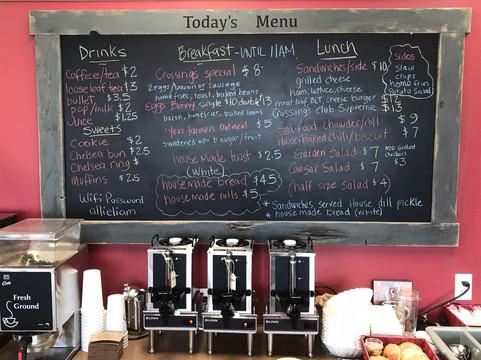 Today's Menu
Drinks
Coffee/tea $2
loose leaf tea $3
bullet $3.5
pop/milk $2
Juice $1.25
Sweets
Cookie $2
Chelsea bun $2.5
Chelsea ring $
Muffins $2.5
Wifi Password
allieliam
Breakfast - UNTIL 11AM
Crossings special $8
2 eggs/bacon or sausage
homefries, toast, baked beans
Eggs Benny single $10 double $13
bacon, homefries, baked beans
Your farmers Oatmeal $5
sweetened with b.sugar/fruit
house made toast $2.5
(White)
house made bread $4.5
house made rolls $5
Lunch
Sandwiches/side $10
grilled cheese
ham, lettuce, cheese
meat loaf, BLT, cheese burger $12
Crossings club Supreme $13
Seafood chowder/roll $9
House-baked chili/biscuit $7
Garden Salad $7
Caesar Salad $7
add Grilled chicken $3
(half size salad $4)
* Sandwiches served House dill pickle
* house made bread (white)
sides
slaw
chips
Home fries
Potato Salad
Fresh
Ground
BUNN
BUNN
BUNN